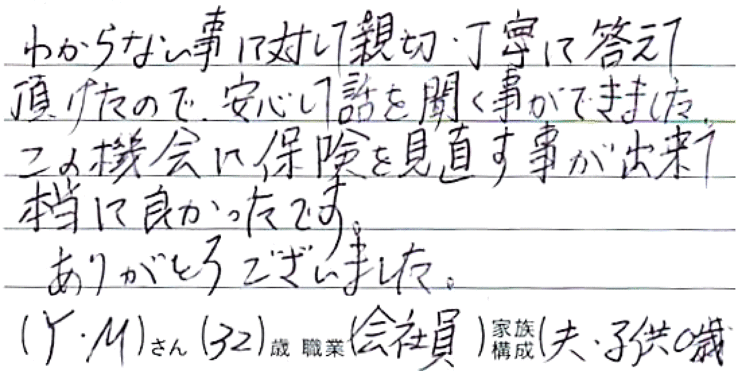 わからない事に対して親切・丁寧に答えて
頂けたので、安心して話を聞く事ができました。
この機会に保険を見直す事が出来て
本当に良かったです。
ありがとうございました。
(Y・M)さん(32)歳 職業(会社員)家族構成(夫・子供0歳